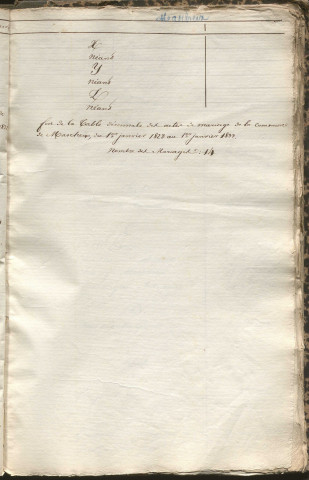 X
néant
Y
néant
Z
néant
fin de la Table décennale des actes de mariage de la commune
de du 1er janvier au 1er janvier
Nombre des Mariages : 44